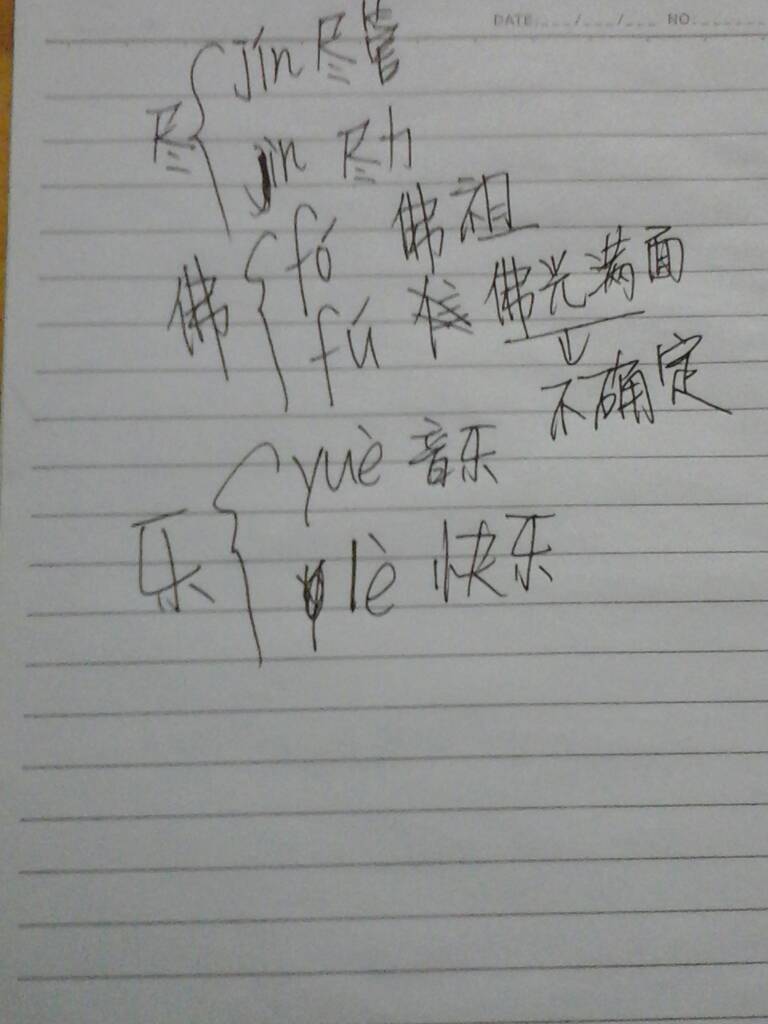 DATE / / NO.
尽 jín 尽管
jìn 尽力
佛 fó 佛祖
fú 佛光满面
不确定
乐 yuè 音乐
lè 快乐